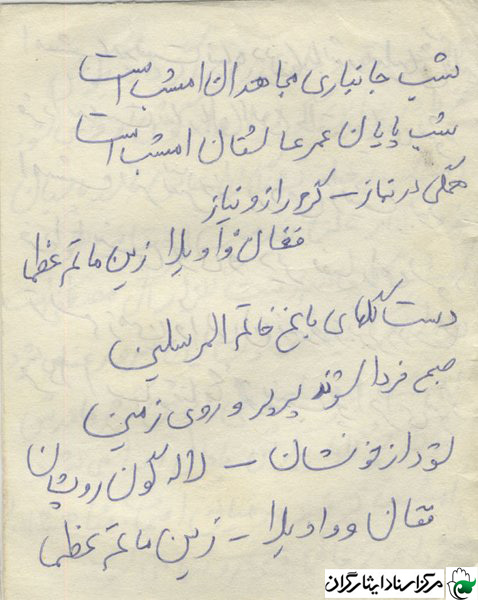 شب جانبازی مجاهدان امشب است
شب پایان عمر عاشقان امشب است
همگی در نماز – گرم راز و نیاز
فغان وا ویلا زین ماتم عظما
دست گلهای باغ خاتم المرسلین
صبح فردا شوند پرپر و روی زمین
شود از خونشان – لاله گون رویشان
فغان و واویلا – زین ماتم عظما
مرکز اسناد ایثارگران